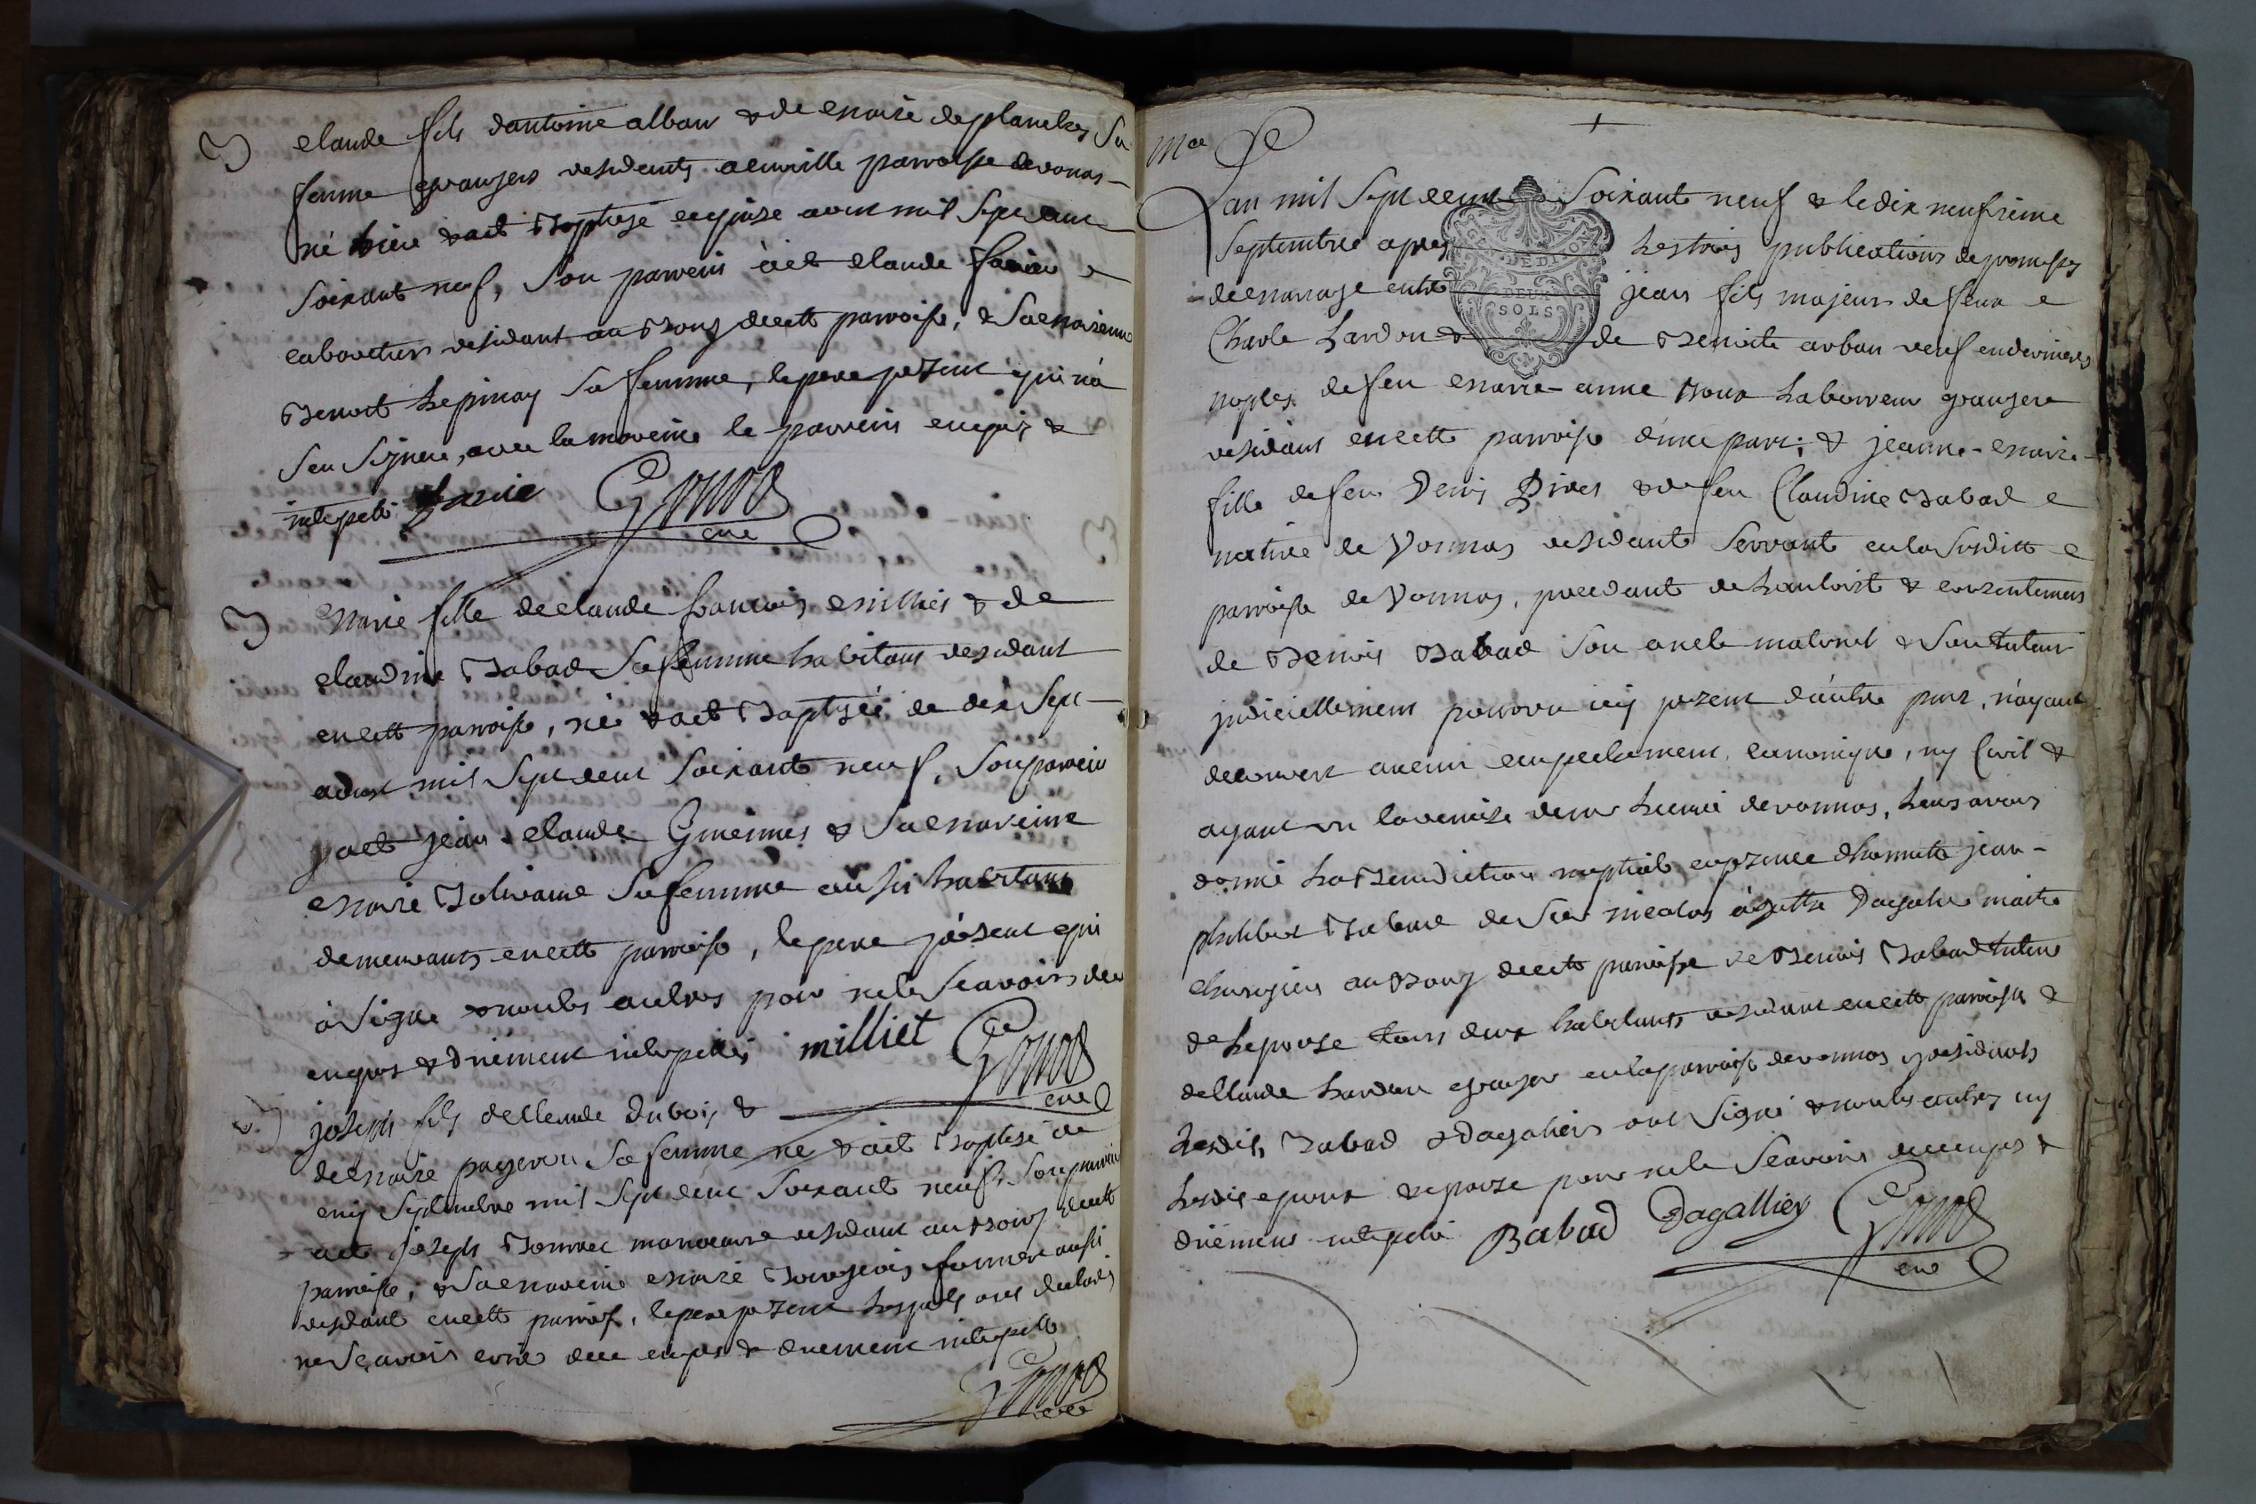 B
claude fils dantoine alban & de marie deplanches sa
femme grangers residents a luville parroisse devonas
né hier & aété baptisé ce quinze aout mil sept cent
soixante neuf, son parrein à eté claude
cabaretier residant au bourg decette parroisse, & sa mareine
benoite lepinay sa femme, le pere présent qui n'a
sçu signer, avec la mareine le parrein enquis &
interpelé
Gonod
curé
B
marie fille declaude françois millies & de
claudine babad sa femme habitans residant
encette parroisse, née & aeté baptisée le dix sept
aoust mil sept cent soixante neuf, son parrein
yaeté jean claude & sa mareine
marie sa femme aussi habitans
demeurants encette parroisse, le pere présent qui
à signé & non les autres pour ne le sçavoir de ce
enquis & duement interpellés milliet Gonod
curé
B
joseph fils de claude dubois &
de marie sa femme né & aété baptisé le
septembre mil sept cent soixante neuf, son parrein
aeté joseph manoeuvre residant au bourg decette
parroisse; & sa mareine marie bourgeois aussi
residant encette parroisse, le pere present lesquels ont declarés
ne sçavoir ecrire de ce enquis & duement interpellé
Gonod
curé
Mar
L'an mil sept cent soixante neuf & le dix neufvieme
GE. DE DIJON
DEUX
SOLS
septembre apres les trois publications de promesses
de mariage entre jean fils majeur de feux
Charle Lardon & de benoite arban veuf en dernieres
noples de feu marie-anne laboureur granger
residant encette parroisse d'une part; & jeanne-marie
fille de feu Denis & de feu Claudine babad
native de Vonnas residante servante en la susditte
parroisse de Vonnas, procedant de l'authorité & consentement
de Denis babad son oncle maternel & son tuteur
judiciellement pourvu icy présent d'autre part, n'ayant
decouvert aucun empechement canonique, ny civil &
ayant vu la remise demr le curé devonnas, leurs avons
donné la benediction nuptiale en présence d'honnete jean-
philibert babad de sieur nicolas Dagallier maitre
chirurgien au bourg decette parroisse de Denis babad tuteur
de l'epouse tous deux habitants residant encette parroisse &
declaude Lardon granger en laparroisse devonnas, y residants
lesdits babad & Dagallier ont signé & non les autres ny
lesdits epoux & epouse pour ne le sçavoir de ce enquis &
duement interpelé Babad Dagallier Gonod
curé